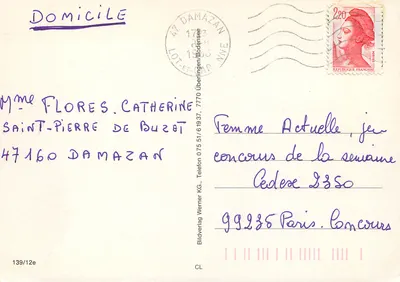 DOMICILE
47 DAMAZAN
2,20
Mme FLORES. CATHERINE
SAINT-PIERRE DE BUZET
47160 DAMAZAN
Bildverlag Werner KG, Telefon 07551/61937, 7770 Überlingen/Bodensee
Femme Actuelle, jeu
concours de la semaine
Cedex 2350
99236 Paris. Concours
139/12e
CL